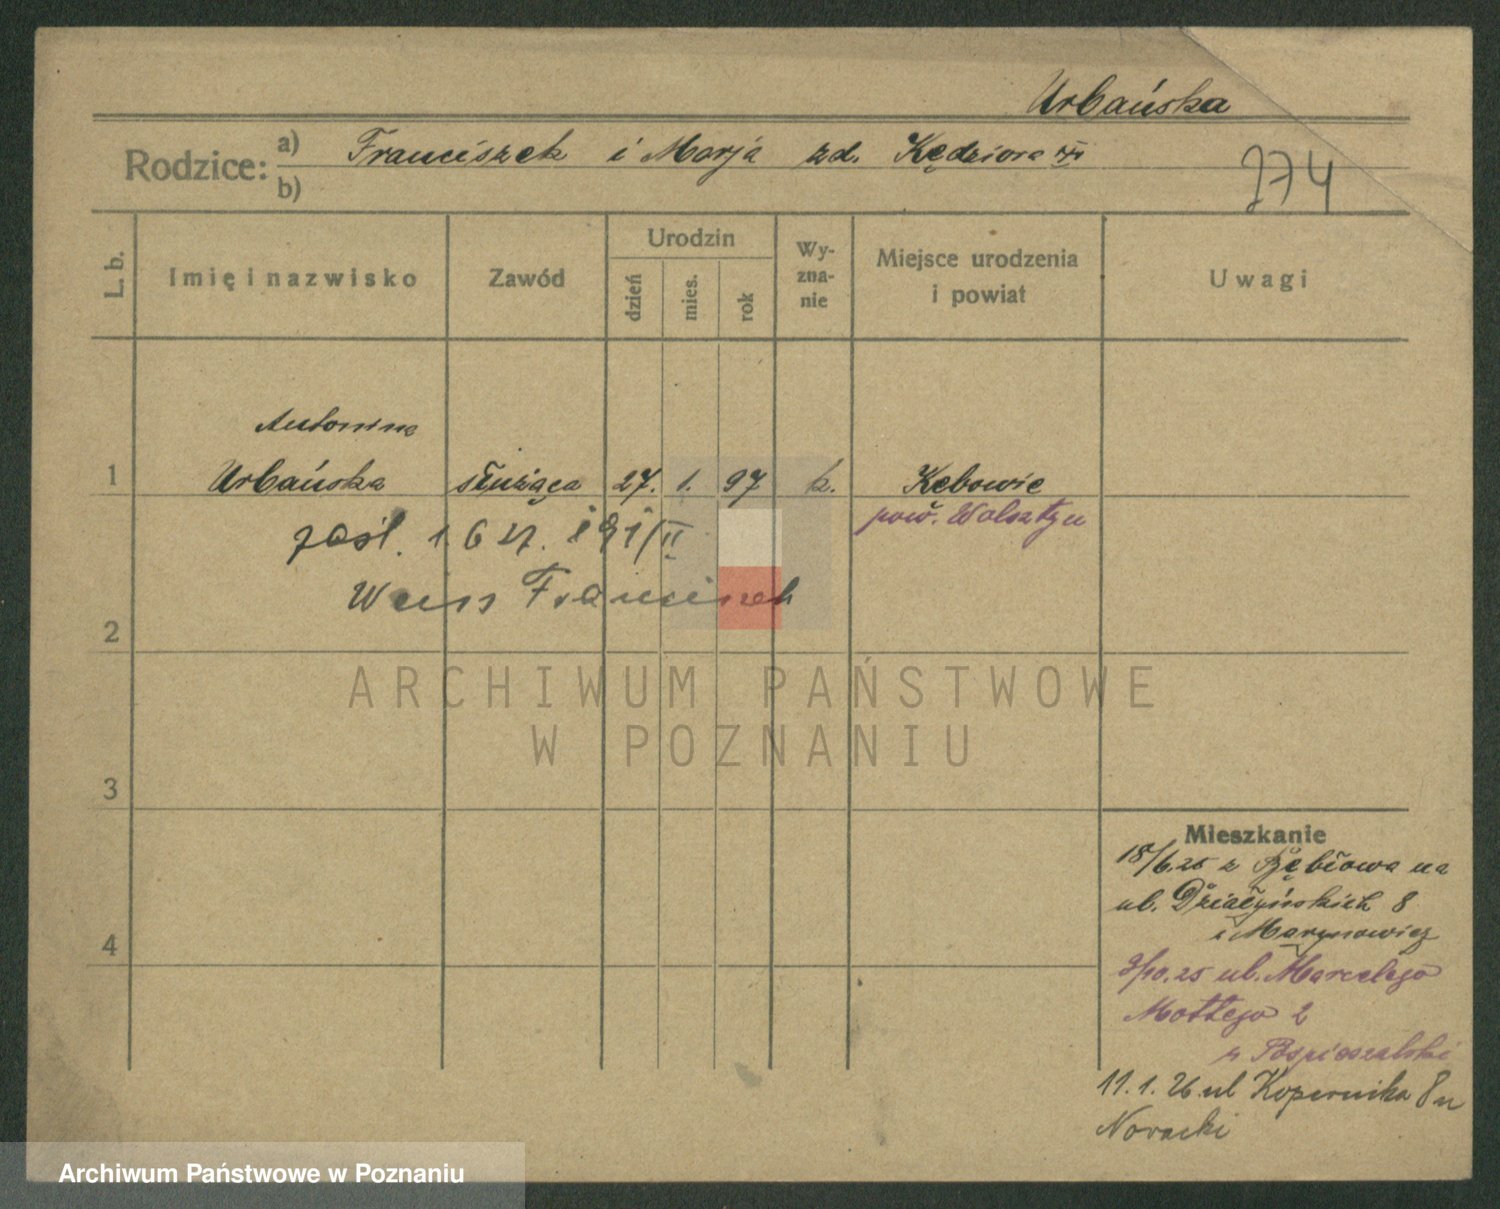 Urbańska
Rodzice: a) Franciszek i Marja zd. Kędziora
b)
274
L. b.
Imię i nazwisko
Zawód
Urodzin
dzień
mies.
rok
Wy-
zna-
nie
Miejsce urodzenia
i powiat
Uwagi
Antonina
1 Urbańska służąca 27. 1. 97 k. Kębowie
pow. Wolsztyn
zaśl.
Franciszek
2
ARCHIWUM PAŃSTWOWE
W POZNANIU
3
4
Mieszkanie
18/6.25 z Rębłowa na
ul. Działyńskich 8
Marcelego
Mottego 2
u Pospieszalski
11.1.26 ul Kopernika 8 u
Noracki
Archiwum Państwowe w Poznaniu